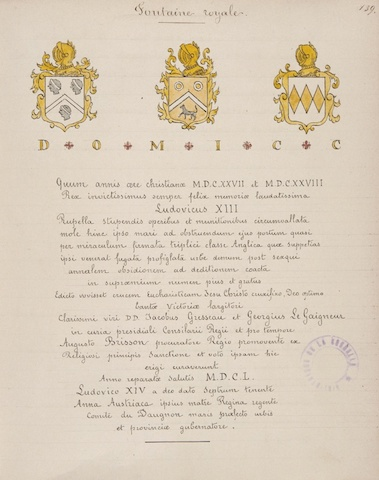 Fontaine royale.
139.
D O M I C C
Quum annis ære christianæ M.D.C.XXVII et M.D.C.XXVIII
Rex invictissimus semper felix memoriæ laudatissima
Ludovicus XIII
Rupella stupendis operibus et munitionibus circumvallata
mole hinc ipso mari ad obstruendum ejus portum quasi
per miraculum firmata triplici classe Anglica quæ suppetias
ipsi venerat fugata profligata urbe demum post sesqui
annalem obsidionem ad deditionem coacta
in supremum numen pius et gratus
Edicto vovisset crucem eucharisticam Jesu Christo crucifixo Deo optimo
tantæ Victoriæ largitori
Clarissimi viri DD. Jacobus Gresseau et Georgius Le Gaigneur
in curia presidiali Consilarii Regii et pro tenore
Augusto Brisson procuratore Regio promovente ex
Religioni principis Sanctione et voto ipsam hic
erigi curaverunt
Anno reparatæ salutis M.D.C.L.
Ludovico XIV a deo dato Septrum tinente
Anna Austriaca ipsius matre Regina regente
Comite du Daugnon maris præfecto urbis
et provinciæ gubernatore.
DE LA ROCHELLE